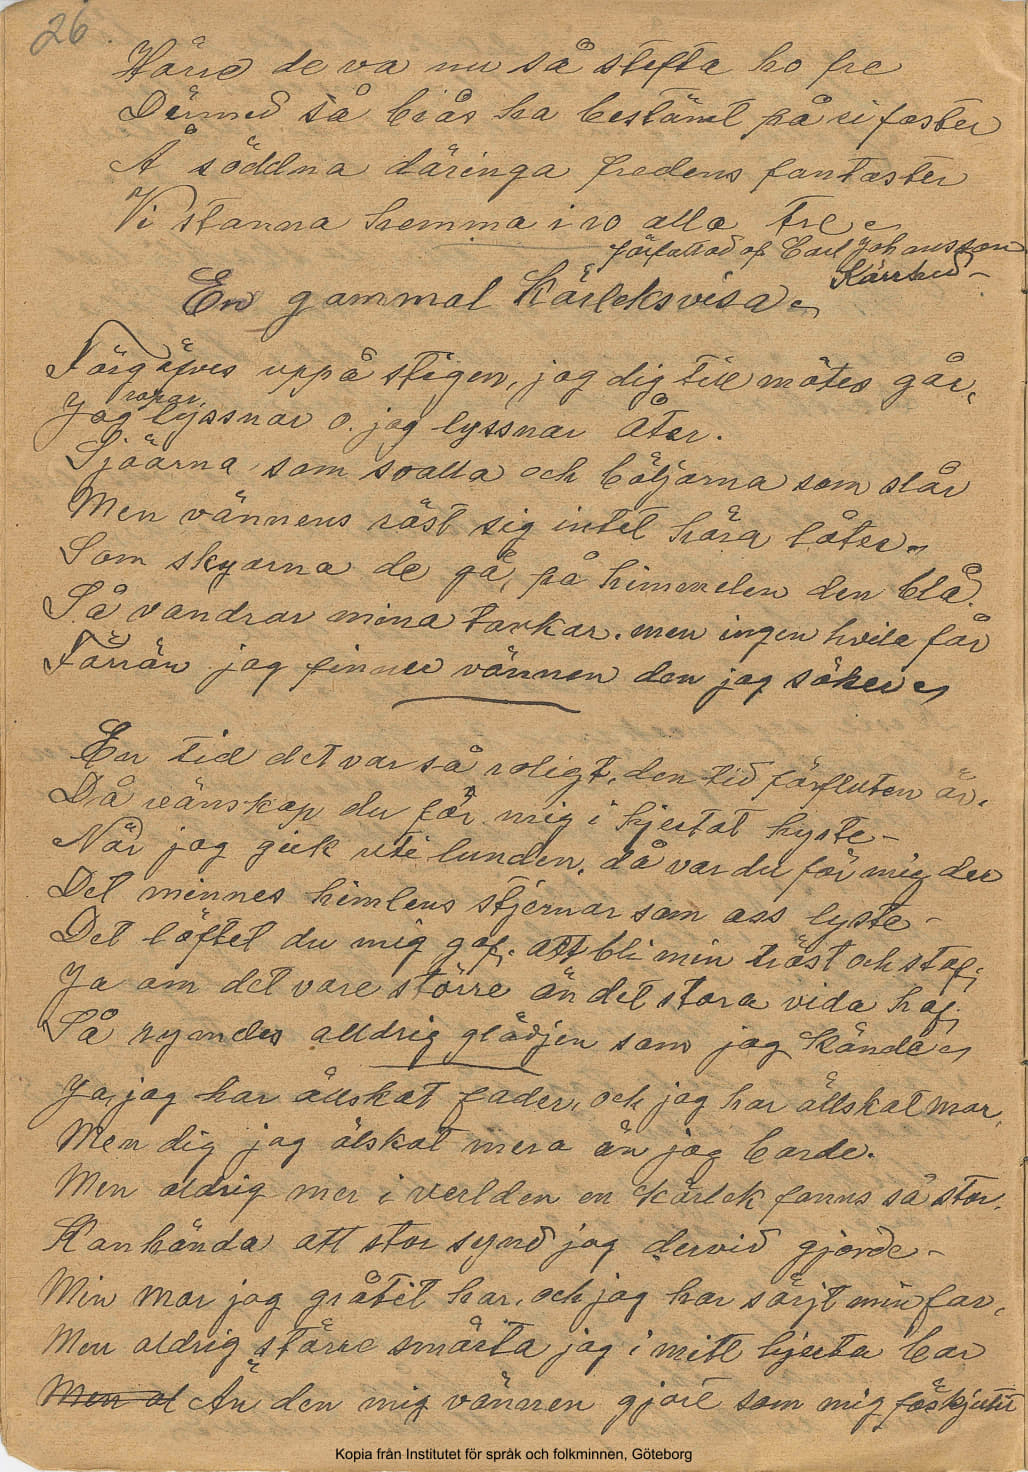 26
Hårre de va nu så stefta ho fre
Därmed så biås ha bestämt på si faster
Å söddna däringa fredens fantaster
Vi stanna hemma i ro alla tre
författad af Carl Johansson
Kärrhed
En gammal Kärleksvisa
Förgäfves uppå stigen, jag dig till mötes går,
ropar
Jag lyssnar o. jag lyssnar Åter.
Sjöarna som svalla och böljorna som slår
Men vännens röst sig intet höra låter
Som skyarna de gå, på himmelen den blå.
Så vandrar mina tankar. men ingen hvila får
Förrän jag finner vännen den jag söker
En tid det var så roligt, den tid förfluten är.
Då vänskap du för mig i hjertat hyste –
När jag gick uti lunden, då var du för mig der
Det minnes himlens stjernor som oss lyste –
Det löftet du mig gaf, att bli min tröst och staf,
Ja om det vore större än det stora vida haf,
Så rymdes alldrig glädjen som jag Kände
Ja, jag har älskat fader, och jag har ällskat mor,
Men dig jag älskat mera än jag borde.
Men aldrig mer i verlden en kärlek fanns så stor.
Kanhända att stor synd jag dervid gjorde –
Min mor jag gråtit har, och jag har sörjt min far,
Men aldrig större smärta jag i mitt hjerta bar
Men al Än den mig vännen gjort som mig förskjutit
Kopia från Institutet för språk och folkminnen, Göteborg